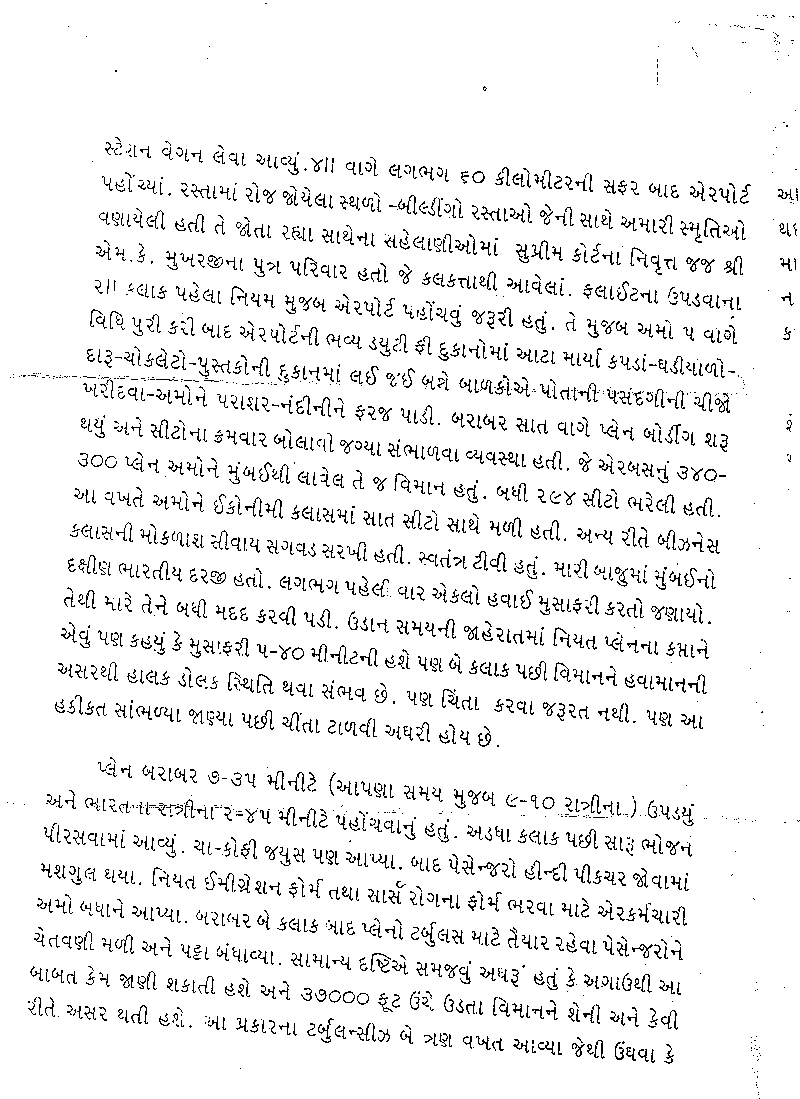 સ્ટેશન વેગન લેવા આવ્યું.૪ાા વાગે લગભગ ૬૦ કીલોમીટરની સફર બાદ એરપોર્ટ
પહોંચ્યાં. રસ્તામાં રોજ જોયેલા સ્થળો -બીલ્ડીંગો રસ્તાઓ જેની સાથે અમારી સ્મૃતિઓ
વણાયેલી હતી તે જોતા રહ્યા સાથેના સહેલાણીઓમાં સુપ્રીમ કોર્ટના નિવૃત્ત જજ શ્રી
એમ.કે. મુખરજીના પુત્ર પરિવાર હતો જે કલકત્તાથી આવેલાં. ફલાઈટના ઉપડવાના
૨ાા કલાક પહેલા નિયમ મુજબ એરપોર્ટ પહોંચવું જરૂરી હતું. તે મુજબ અમો ૫ વાગે
વિધિ પુરી કરી બાદ એરપોર્ટની ભવ્ય ડયુટી ફ્રી દુકાનોમાં આટા માર્યા કપડાં-ઘડીયાળો-
દારૂ-ચોકલેટો-પુસ્તકોની દુકાનમાં લઈ જઈ બશે બાળકોએ પોતાની પસંદગીની ચીજો
ખરીદવા-અમોને પરાશર-નંદીનીને ફરજ પાડી. બરાબર સાત વાગે પ્લેન બોર્ડીંગ શરૂ
થયું અને સીટોના ક્રમવાર બોલાવો જગ્યા સંભાળવા વ્યવસ્થા હતી. જે એરબસનું ૩૪૦-
૩૦૦ પ્લેન અમોને મુંબઈથી લાવેલ તે જ વિમાન હતું. બધી ૨૯૪ સીટો ભરેલી હતી.
આ વખતે અમોને ઈકોનીમી કલાસમાં સાત સીટો સાથે મળી હતી. અન્ય રીતે બીઝનેસ
કલાસની મોકળાશ સીવાય સગવડ સરખી હતી. સ્વતંત્ર ટીવી હતું. મારી બાજુમાં મુંબઈનો
દક્ષીણ ભારતીય દરજી હતો. લગભગ પહેલી વાર એકલો હવાઈ મુસાફરી કરતો જણાયો.
તેથી મારે તેને બધી મદદ કરવી પડી. ઉડાન સમયની જાહેરાતમાં નિયત પ્લેનના કપ્તાને
એવું પણ કહયું કે મુસાફરી ૫-૪૦ મીનીટની હશે પણ બે કલાક પછી વિમાનને હવામાનની
અસરથી હાલક ડોલક સ્થિતિ થવા સંભવ છે. પણ ચિંતા કરવા જરૂરત નથી. પણ આ
હકીકત સાંભળ્યા જાણ્યા પછી ચીંતા ટાળવી અઘરી હોય છે.
પ્લેન બરાબર ૭-૩૫ મીનીટે (આપણા સમય મુજબ ૯-૧૦ રાત્રીના.) ઉપડયું
અને ભારતના રાત્રીના ૨-૪૫ મીનીટે પહોંચવાનું હતું. અડધા કલાક પછી સારૂ ભોજન
પીરસવામાં આવ્યું. ચા-કોફી જયુસ પણ આપ્યા. બાદ પેસેન્જરો હીન્દી પીકચર જોવામાં
મશગુલ થયા. નિયત ઈમીગ્રેશન ફોર્મ તથા સાર્સ રોગના ફોર્મ ભરવા માટે એરકર્મચારી
અમો બધાને આપ્યા. બરાબર બે કલાક બાદ પ્લેનો ટર્બુલસ માટે તૈયાર રહેવા પેસેન્જરોને
ચેતવણી મળી અને પટ્ટા બંધાવ્યા. સામાન્ય દષ્ટિએ સમજવું અઘરૂં હતું કે અગાઉથી આ
બાબત કેમ જાણી શકાતી હશે અને ૩૭૦૦૦ ફૂટ ઉંચે ઉડતા વિમાનને શેની અને કેવી
રીતે અસર થતી હશે. આ પ્રકારના ટર્બુલન્સીઝ બે ત્રણ વખત આવ્યા જેથી ઉંઘવા કે